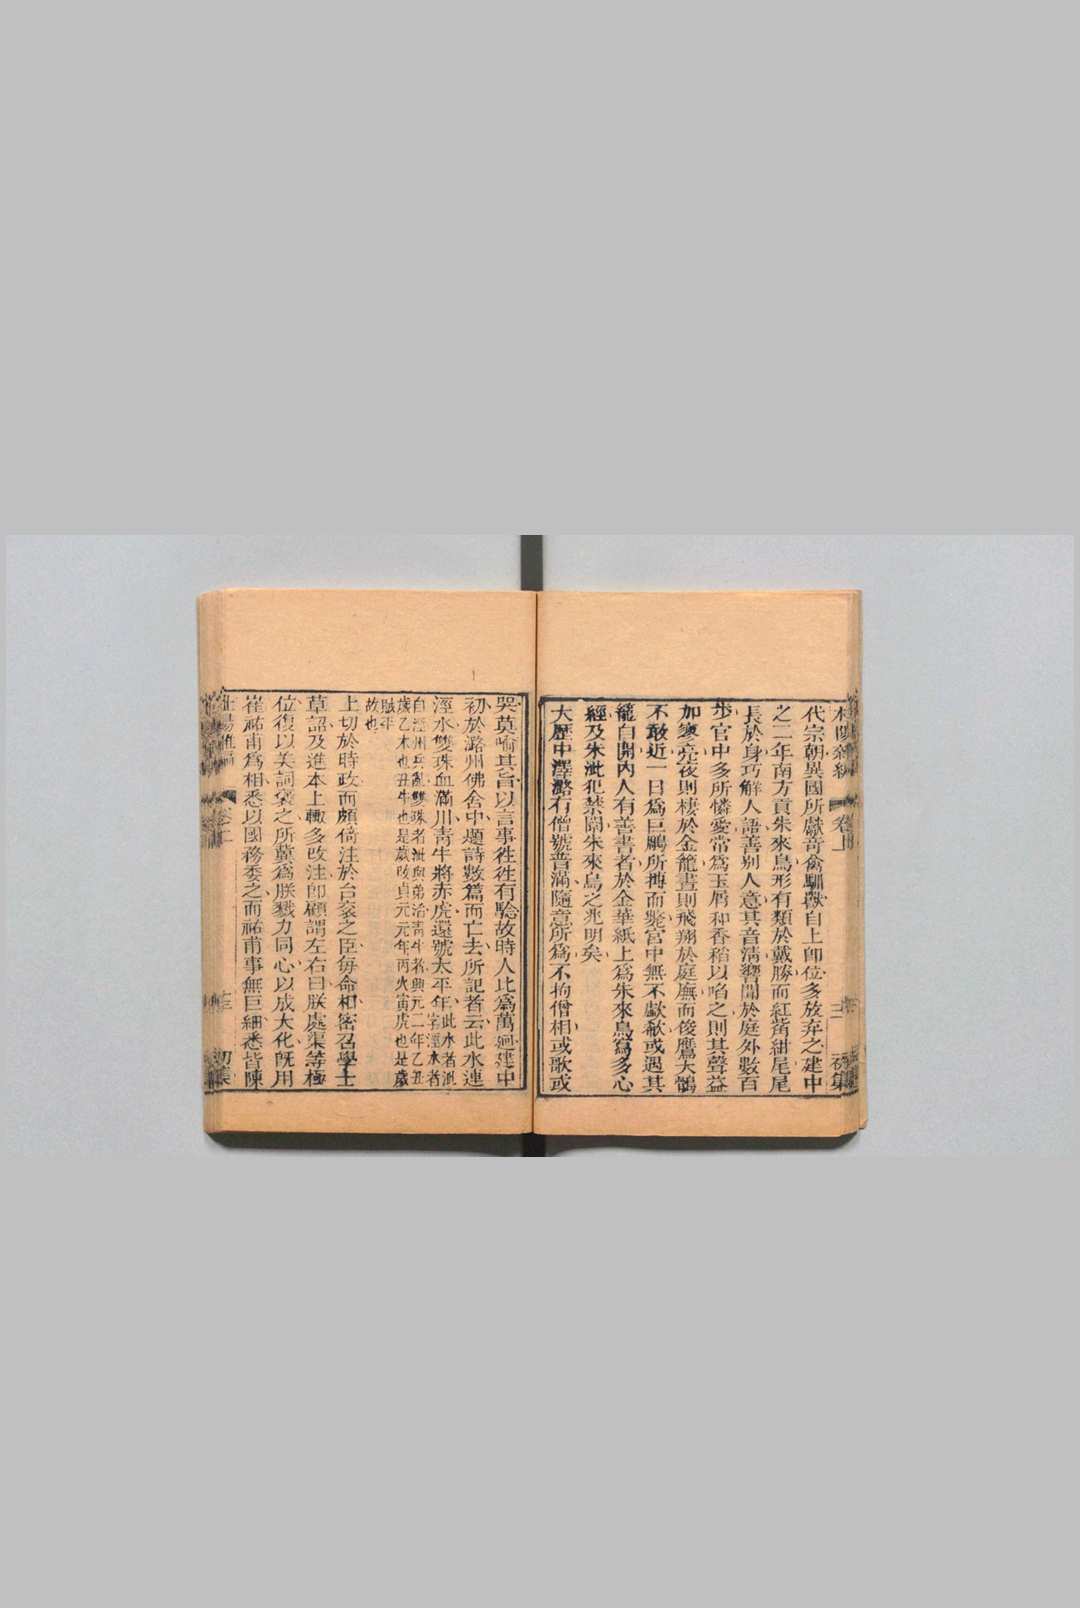 代宗朝異國所獻竒禽馴獸自上卽位多放弃之建中
之二年南方貢朱來鳥形有類於戴勝而紅觜紺尾尾
長於身巧解人語善别人意其音淸響聞於庭外數百
步宫中多所憐愛常爲玉屑和香稻以啗之則其聲益
加寥亮夜則棲於金籠晝則飛翔於庭廡而俊鷹大鶻
不敢近一日爲巨鵰所搏而斃宫中無不歔欷或遇其
籠自開内人有善書者於金華紙上爲朱來鳥寫多心
經及朱泚犯禁闈朱來鳥之兆明矣
大歷中澤潞有僧號普滿隨意所爲不拘僧相或歌或
哭莫喻其旨以言事徃徃有驗故時人比爲萬廻建中
初於潞州佛舍中題詩數篇而亡去所記者云此水連
涇水雙珠血滿川靑牛將赤虎還號太平年此水者泚字涇水者
自涇州兵亂雙珠者泚與弟滔靑牛者興元二年乙丑
歲乙木也丑牛也是歲改貞元元年丙火寅虎也是歲
賊平
故也
上切於時政而頗倚注於台衮之臣每命相密召學士
草詔及進本上輙多改注卽顧謂左右曰朕處渠等極
位復以美詞褒之所冀爲朕戮力同心以成大化旣用
崔祐甫爲相悉以國務委之而祐甫事無巨細悉皆陳